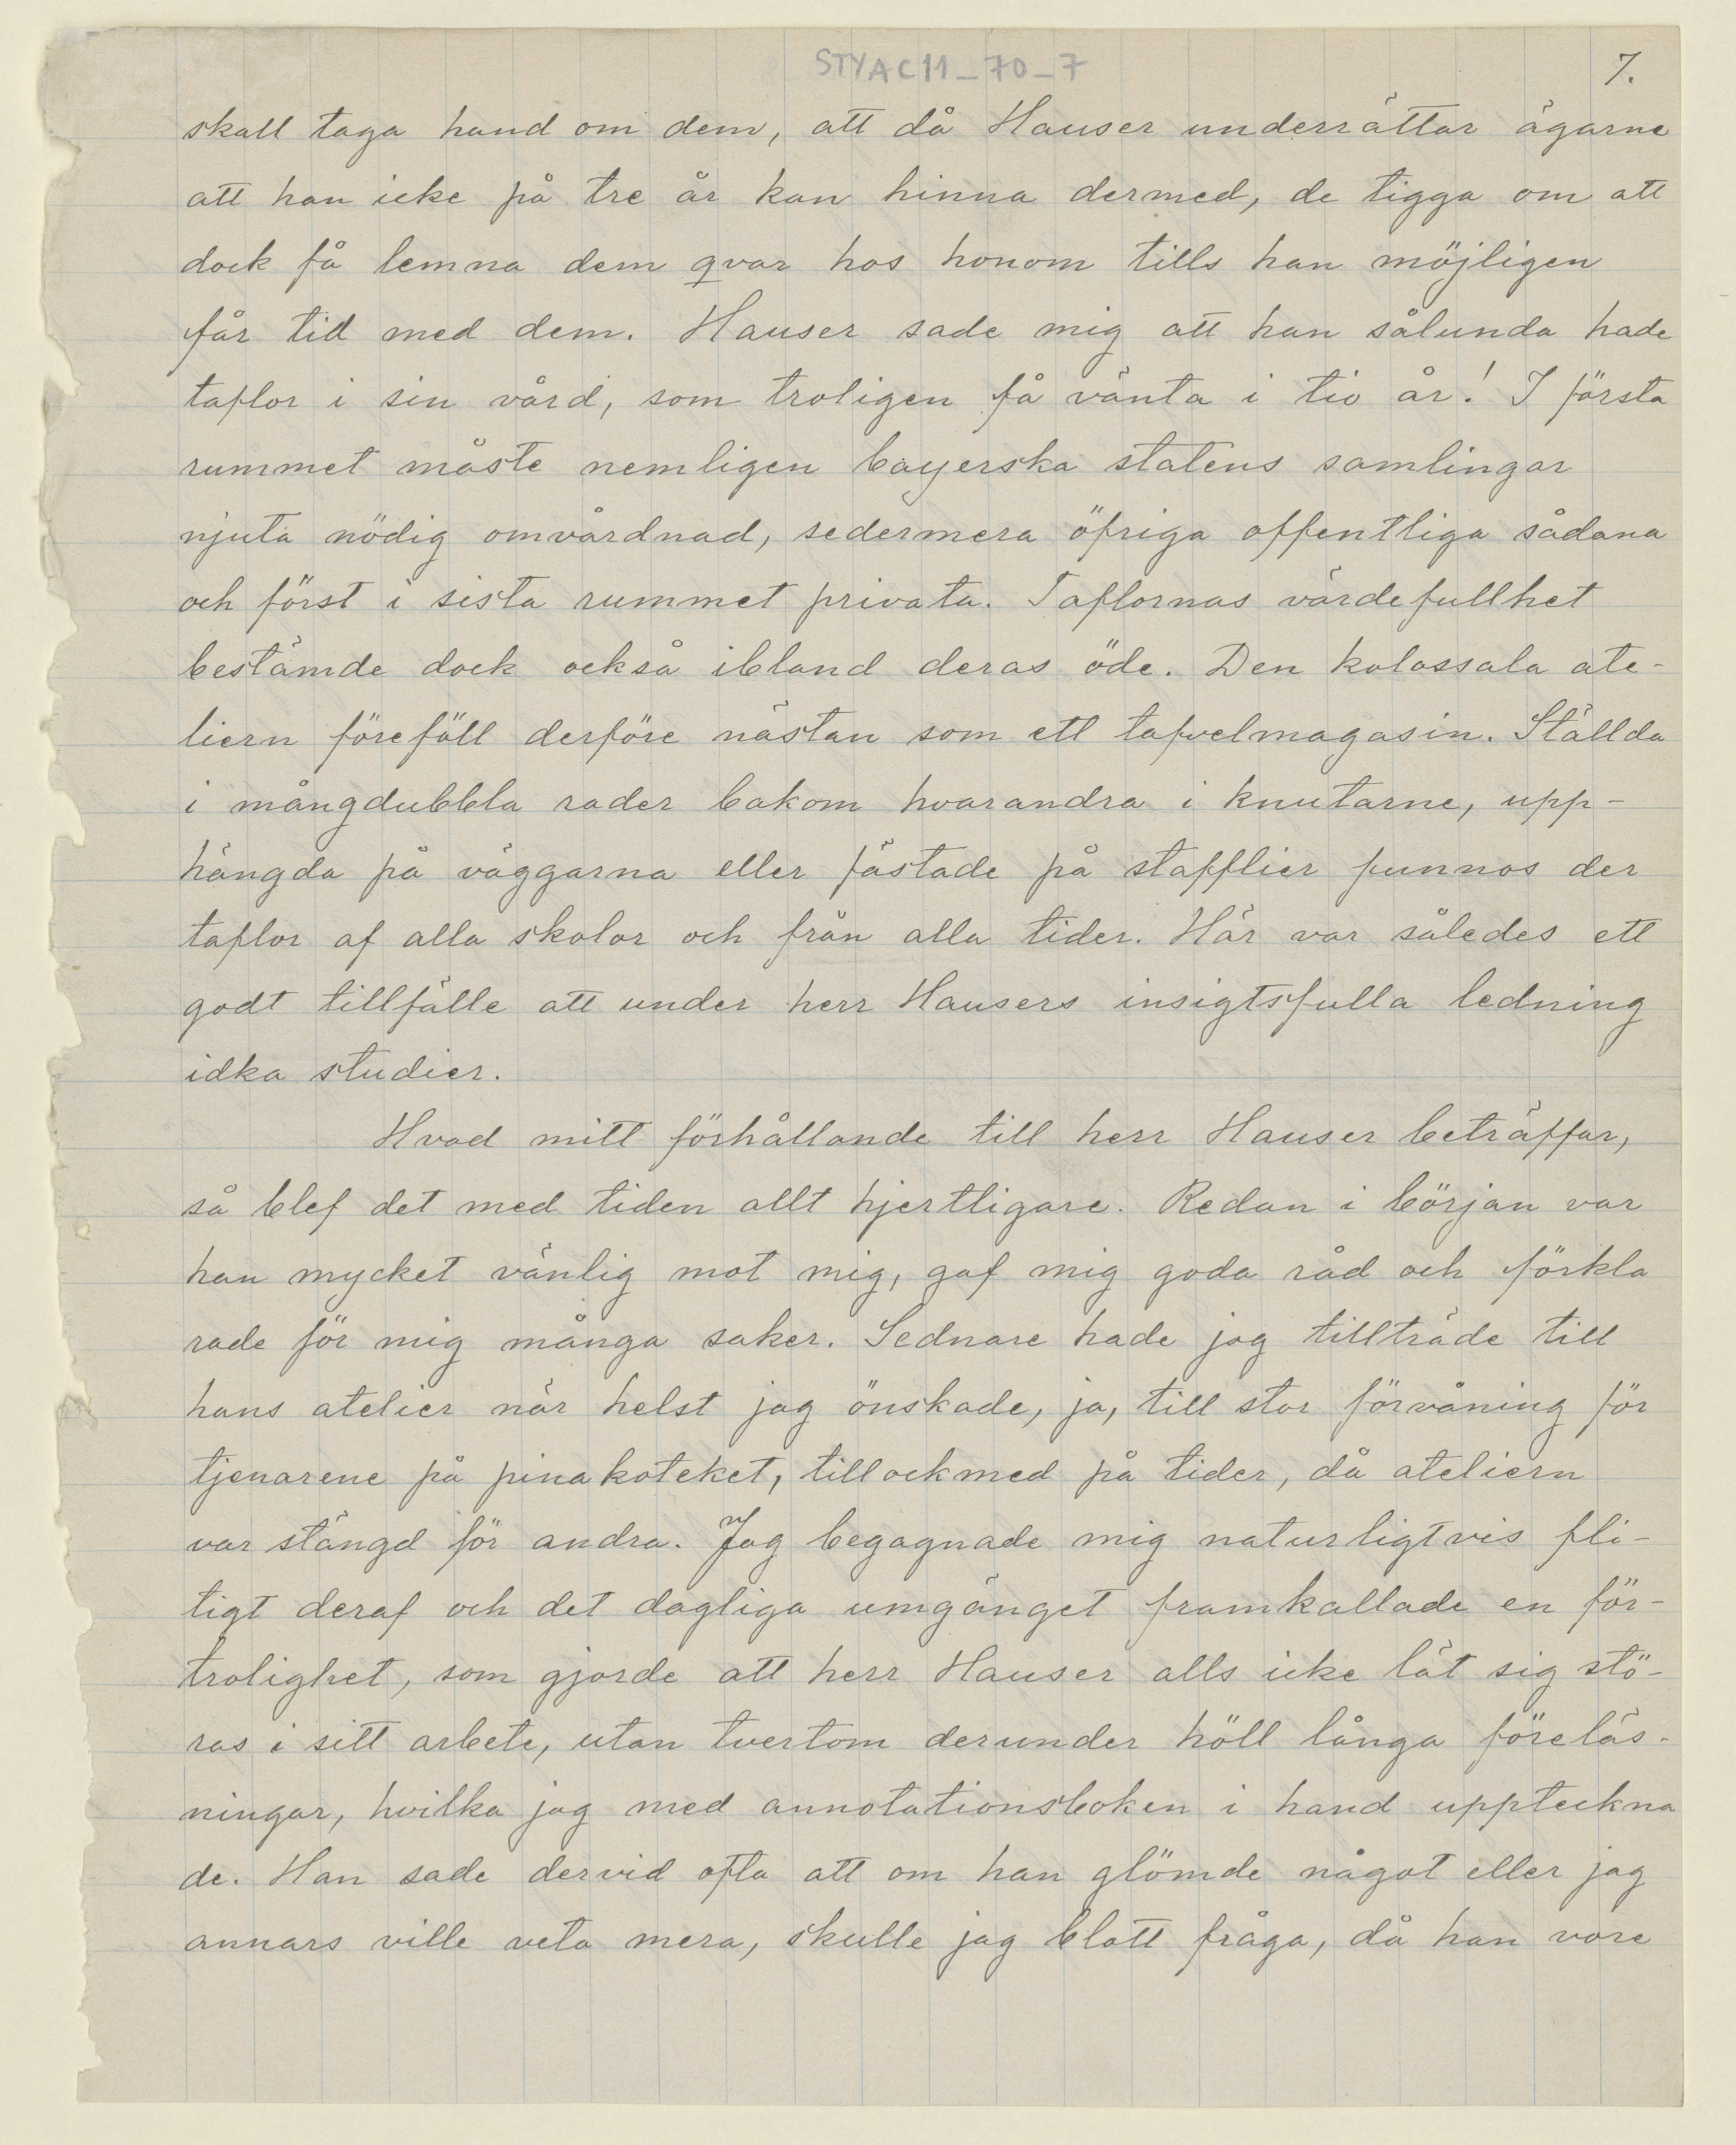 STYAC11_70_7
7.
skall taga hand om dem, att då Hauser underrättar ägarne
att han icke på tre år kan hinna dermed, de tigga om att
dock få lemna dem qvar hos honom tills han möjligen
får tid med dem. Hauser sade mig att han sålunda hade
taflor i sin vård, som troligen få vänta i tio år! I första
rummet måste nemligen bayerska statens samlingar
njuta nödig omvårdnad, sedermera öfriga offentliga sådana
och först i sista rummet privata. Taflornas värdefullhet
bestämde dock också ibland deras öde. Den kolossala ate-
liern föreföll derföre nästan som ett tafvelmagasin. Ställda
i mångdubbla rader bakom hvarandra i knutarne, upp-
hängda på väggarna eller fästade på stafflier funnos der
taflor af alla skolor och från alla tider. Här var således ett
godt tillfälle att under herr Hausers insigtsfulla ledning
idka studier.
Hvad mitt förhållande till herr Hauser beträffar,
så blef det med tiden allt hjertligare. Redan i början var
han mycket vänlig mot mig, gaf mig goda råd och förkla
rade för mig många saker. Sednare hade jag tillträde till
hans atelier när helst jag önskade, ja, till stor förvåning för
tjenarene på pinakoteket, tillockmed på tider, då ateliern
var stängd för andra. Jag begagnade mig naturligtvis fli-
tigt deraf och det dagliga umgänget framkallade en för-
trolighet, som gjorde att herr Hauser alls icke lät sig stö-
ras i sitt arbete, utan tvertom derunder höll långa föreläs-
ningar, hvilka jag med annotationsboken i hand uppteckna
de. Han sade dervid ofta att om han glömde något eller jag
annars ville veta mera, skulle jag blott fråga, då han vore